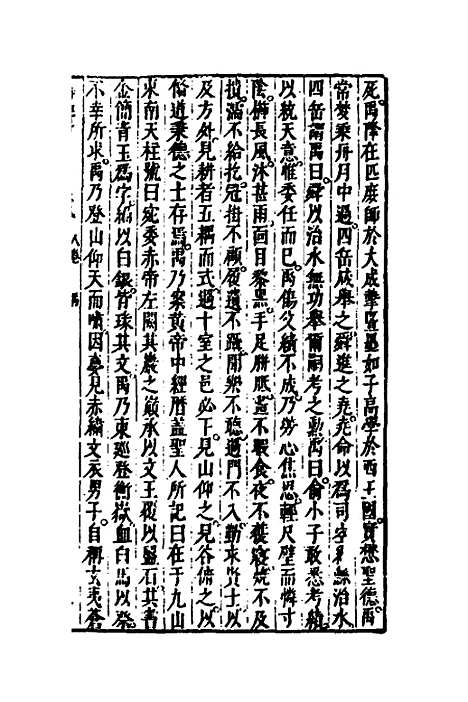 死禹降在匹庶師於大成摯曁墨如子高學於西王國實懋聖德禹
當夢乘舟月中過四岳咸舉之舜進之堯堯命以爲司空繇治水
四岳謂禹曰舜以治水無功舉爾嗣考之勳禹曰俞小子敢悉考績
以統天意惟委任而巳禹傷父績不成乃勞心焦思輕尺璧而憐寸
陰櫛長風沐甚雨面目黎黑手足胼胝晝不暇食夜不獲寢燒不及
撌濡不給扢冠掛不顧履遺不躡聞樂不聽過門不入動來賢士以
及方外見耕者五耦而式過十室之邑必下見山仰之見谷俯之以
脩道秉德之士存焉禹乃案黃帝中經曆蓋聖人所記曰在于九山
東南天柱號曰宛委赤帝左闕其巖之巔承以文玉覆以盤石其書
金簡青玉爲字編以白銀皆瑑其文禹乃東巡登衡嶽血白馬以祭
不幸所求禹乃登山仰天而嘯因夢見赤繡文衣男子自稱玄夷蒼